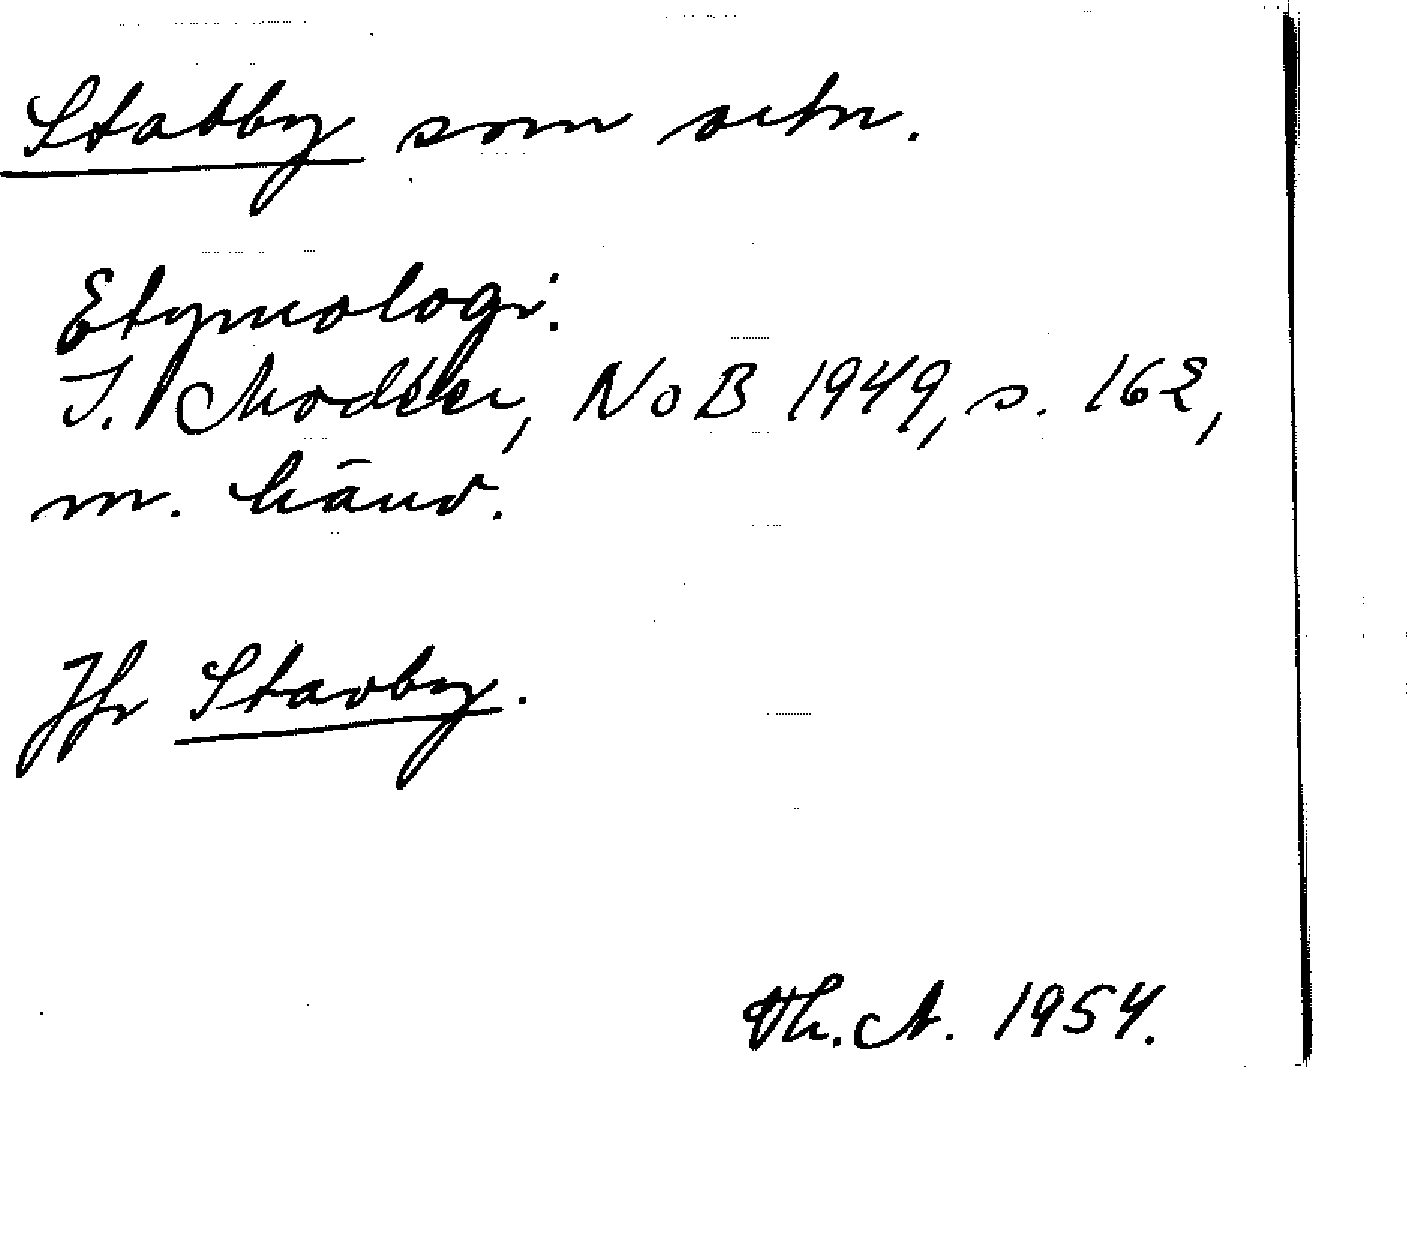 Stabby som ortn.
Etymologi:
I. Modéer, NoB 1949, s. 162,
m. hänv.
Jfr Stavby.
Th. A. 1954.